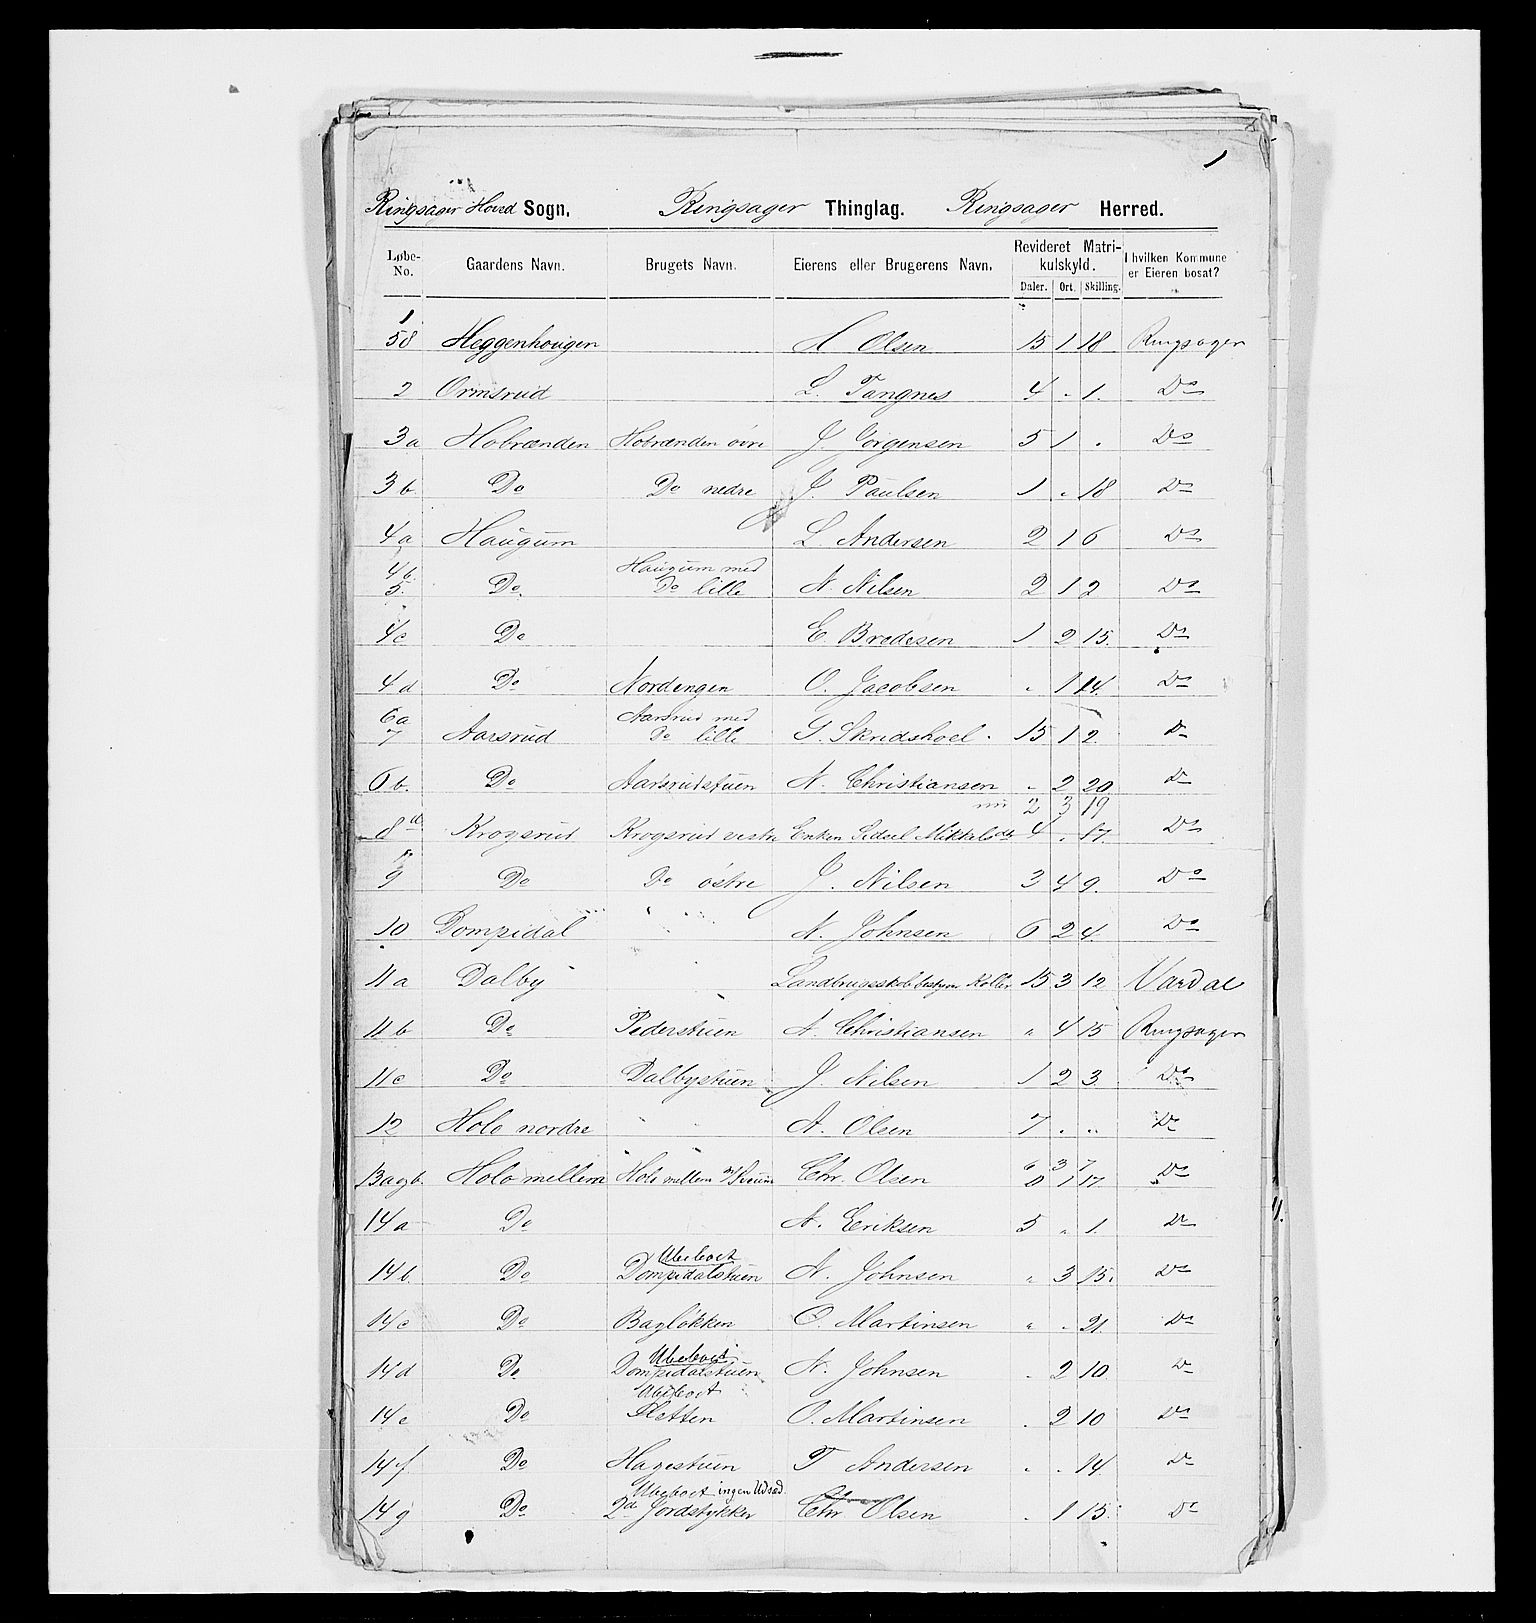 1
Ringsager Hoved Sogn. Ringsager Thinglag. Ringsager Herred.
Løbe-No. Gaardens Navn. Brugets Navn. Eierens eller Brugerens Navn. Revideret Matrikulskyld. I hvilken Kommune er Eieren bosat?
Daler. Ort. Skilling.
1
58 Heggenhougen H Olsen 15 1 18 Ringsager
2 Ormsrud L. Tangnes 4 - 1. Do
3a Hobrænden Hobrænden övre J. Jörgensen 5 1 . Do
3b Do Do nedre J. Paulsen 1 " 18 Do
4a Haugum L. Andersen 2 1 6 Do
4b. Haugum med
5. Do. Do lille N. Nilsen 2 1 2 Do
4c Do E. Bredesen 1 2 15. Do
4d Do Nordengen O. Jacobsen " 1 14. Do
6a Aarsrud med
7 Aarsrud Do lille S. Skredshoel. 15 1 2 Do
6b. Do Aarsrudstuen N. Christiansen - 2 20 Do
nu 2 3 19
8 Krogsrud Krogsrud vestre Enken Sidsel Mikkelsdr 4 . 17. Do
9 Do Do östre J. Nilsen 3 4 9. Do
10 Dompidal N. Johnsen 6 2 4. Do
11a Dalby Landbrugsskolebestyrer Koller 15 3 12 Vardal
11b Do Pederstuen N. Christiansen " 4 15 Ringsager
11c Do Dalbystuen J. Nilsen 1 2 3 Do
12 Holo nordre A. Olsen 7 . " Do
6 3 7
13a&b. Holo mellem Holo mellem m/ Sveum Chr. Olsen 1 17. Do
14a Do N. Eriksen 5 " 1. Do
Ubeboet
14b Do Dompidalstuen N. Johnsen " 3 15. Do
14c Do Baglökken O. Martinsen " - 21. Do
Ubeboet
14d Do Dompidalstuen N. Johnsen . 2 10. Do
Ubeboet
14e Do Sletten O. Martinsen . 2 10 Do
14f. Do Hagestuen T Andersen . . 14. Do
Ubeboet ingen Udsæd.
14g Do 2de Jordstykker Chr Olsen . 1 15. Do